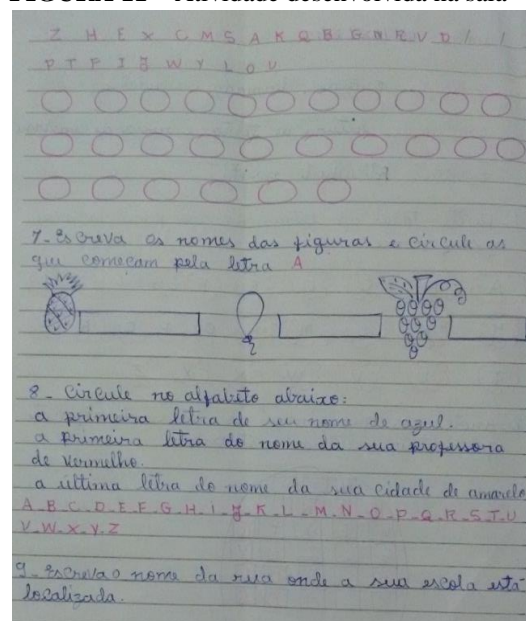 Z H E X C M S A K Q B G N R V D / /
P T F I J W Y L O U
7- Escreva os nomes das figuras e circule as
que começam pela letra A
8- Circule no alfabeto abaixo:
a primeira letra de seu nome de azul.
a primeira letra do nome da sua professora
de vermelho.
a última letra do nome da sua cidade de amarelo
A-B-C-D-E-F-G-H-I-J-K-L-M-N-O-P-Q-R-S-T-U
V-W-X-Y-Z
9- Escreva o nome da rua onde a sua escola está
localizada.